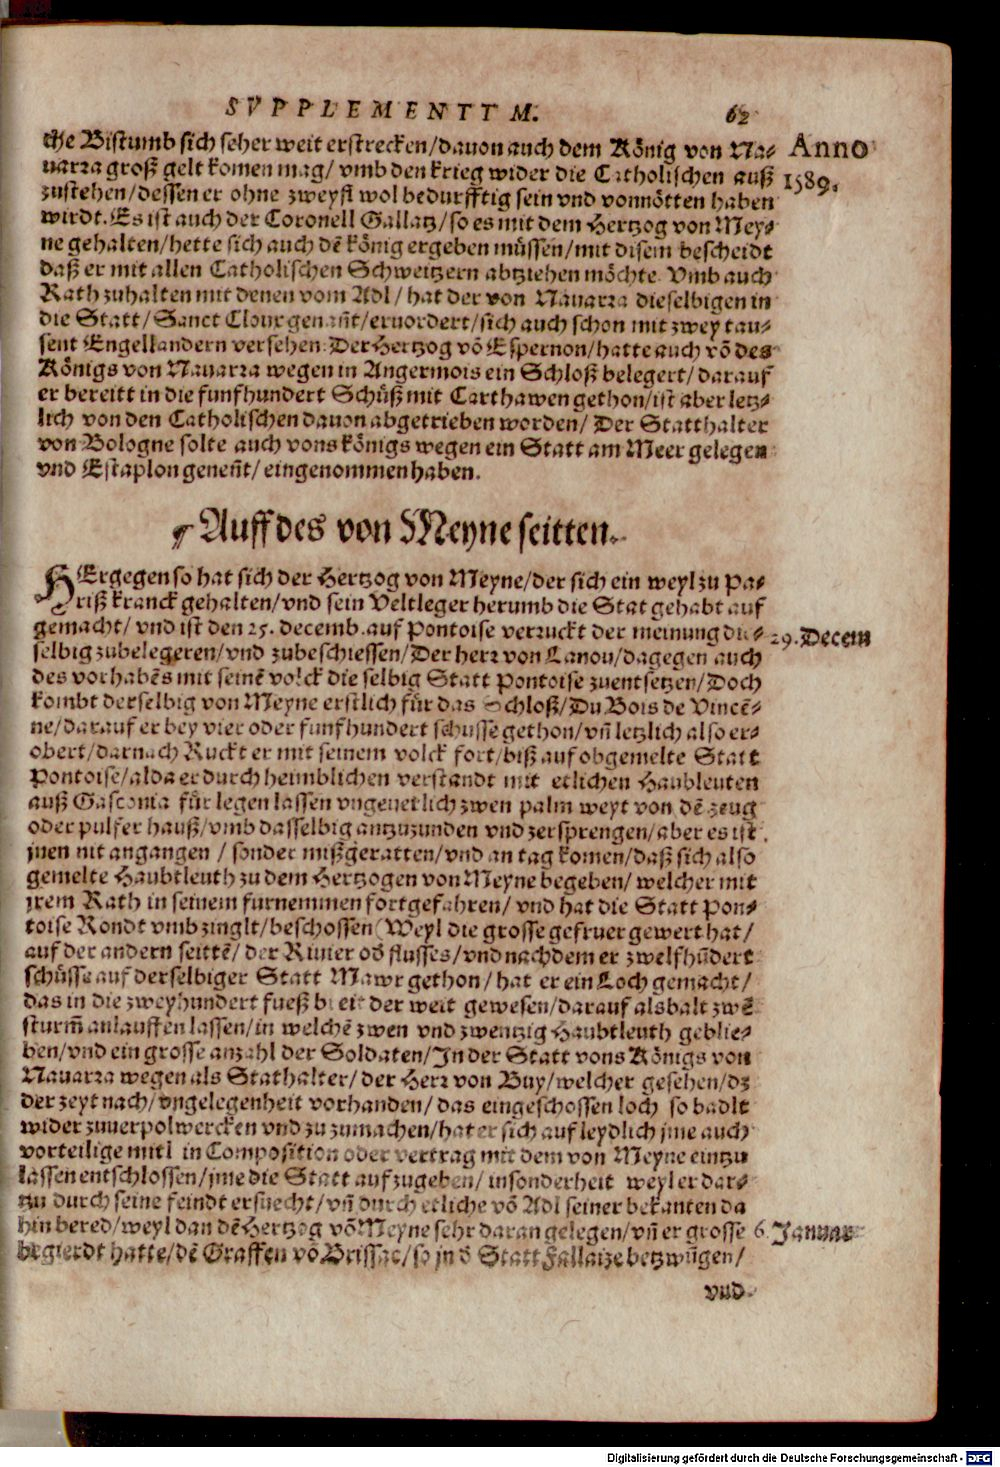 SVPPLEMENTVM. 62
che Bistumb sich seher weit erstrecken/dauon auch dem König von Na⸗
uarra groß gelt komen mag/ vmb den krieg wider die Catholischen auß
zustehen/dessen er ohne zweyfl wol bedurfftig sein vnd vonnötten haben
wirdt. Es ist auch der Coronell Gallatz/so es mit dem Hertzog von Mey⸗
ne gehalten/hette sich auch dē könig ergeben müssen/mit disem bescheidt
daß er mit allen Catholischen Schweitzern abtziehen möchte. Vmb auch
Rath zuhalten mit denen vom Adl/ hat der von Nauarra dieselbigen in
die Statt/Sanct Clour genañt/eruordert/sich auch schon mit zwey tau⸗
sent Engellandern versehen: Der Hertzog vō Espernon/hatte auch vō des
Königs von Nauarra wegen in Angermois ein Schloß belegert/darauf
er bereitt in die funfhundert Schüß mit Carthawen gethon/ist aber letz⸗
lich von den Catholischen dauon abgetrieben worden/ Der Statthalter
von Bologne solte auch vons königs wegen ein Statt am Meer gelegen
vnd Estaplon geneñt/ eingenommen haben.
Anno
1589.
Auff des von Meyne seitten.
HErgegen so hat sich der Hertzog von Meyne/der sich ein weyl zu Pa⸗
riß kranck gehalten/vnd sein Veltleger herumb die Stat gehabt auf
gemacht/ vnd ist den 25. decemb. auf Pontoise verruckt der meinung die⸗
selbig zubelegeren/vnd zubeschiessen/Der herr von Lanou/dagegen auch
des vorhabēs mit seinē volck die selbig Statt Pontoise zuentsetzen/Doch
kombt derselbig von Meyne erstlich für das Schloß/Du Bois de Vincē⸗
ne/darauf er bey vier oder funfhundert schusse gethon/vñ letzlich also er⸗
obert/darnach Ruckt er mit seinem volck fort/biß auf obgemelte Statt
Pontoise/alda er durch heimblichen verstandt mit etlichen Haubleuten
auß Gasconia für legen lassen vngeuerlich zwen palm weyt von dē zeug
oder pulfer hauß/vmb dasselbig antzuzunden vnd zersprengen/aber es ist
jnen nit angangen / sonder mißgeratten/vnd an tag komen/daß sich also
gemelte Haubtleuth zu dem Hertzogen von Meyne begeben/ welcher mit
jrem Rath in seinem furnemmen fortgefahren/ vnd hat die Statt Pon⸗
toise Rondt vmbzinglt/beschossen (Weyl die grosse gefruer gewert hat/
auf der andern seittē/ der Riuier od̄ flusses/vnd nachdem er zwelfhūdert
schüsse auf derselbiger Statt Mawr gethon/ hat er ein Loch gemacht/
das in die zweyhundert fueß breit der weit gewesen/darauf alsbalt zwē
sturm̄ anlauffen lassen/in welchē zwen vnd zwentzig Haubtleuth geblie⸗
ben/vnd ein grosse anzahl der Soldaten/In der Statt vons Königs von
Nauarra wegen als Stathalter/der Herr von Buy/welcher gesehen/dz
der zeyt nach/vngelegenheit vorhanden/das eingeschossen loch so badlt
wider zuuerpolwercken vnd zu zumachen/hat er sich auf leydlich jme auch
vorteilige mitl in Composition oder vertrag mit dem von Meyne eintzu
lassen entschlossen/jme die Statt auf zugeben/ insonderheit weyl er dar⸗
tzu durch seine feindt ersuecht/vñ durch etliche vō Adl seiner bekanten da
hin bered/weyl dan dē Hertzog vō Meyne sehr daran gelegen/vñ er grosse
begierdt hatte/dē Graffen vō Brissac/so in d̄ Statt Fallaize betzwūgen/
29. Decem
6. Januar
vnd
Digitalisierung gefördert durch die Deutsche Forschungsgemeinschaft - DFG